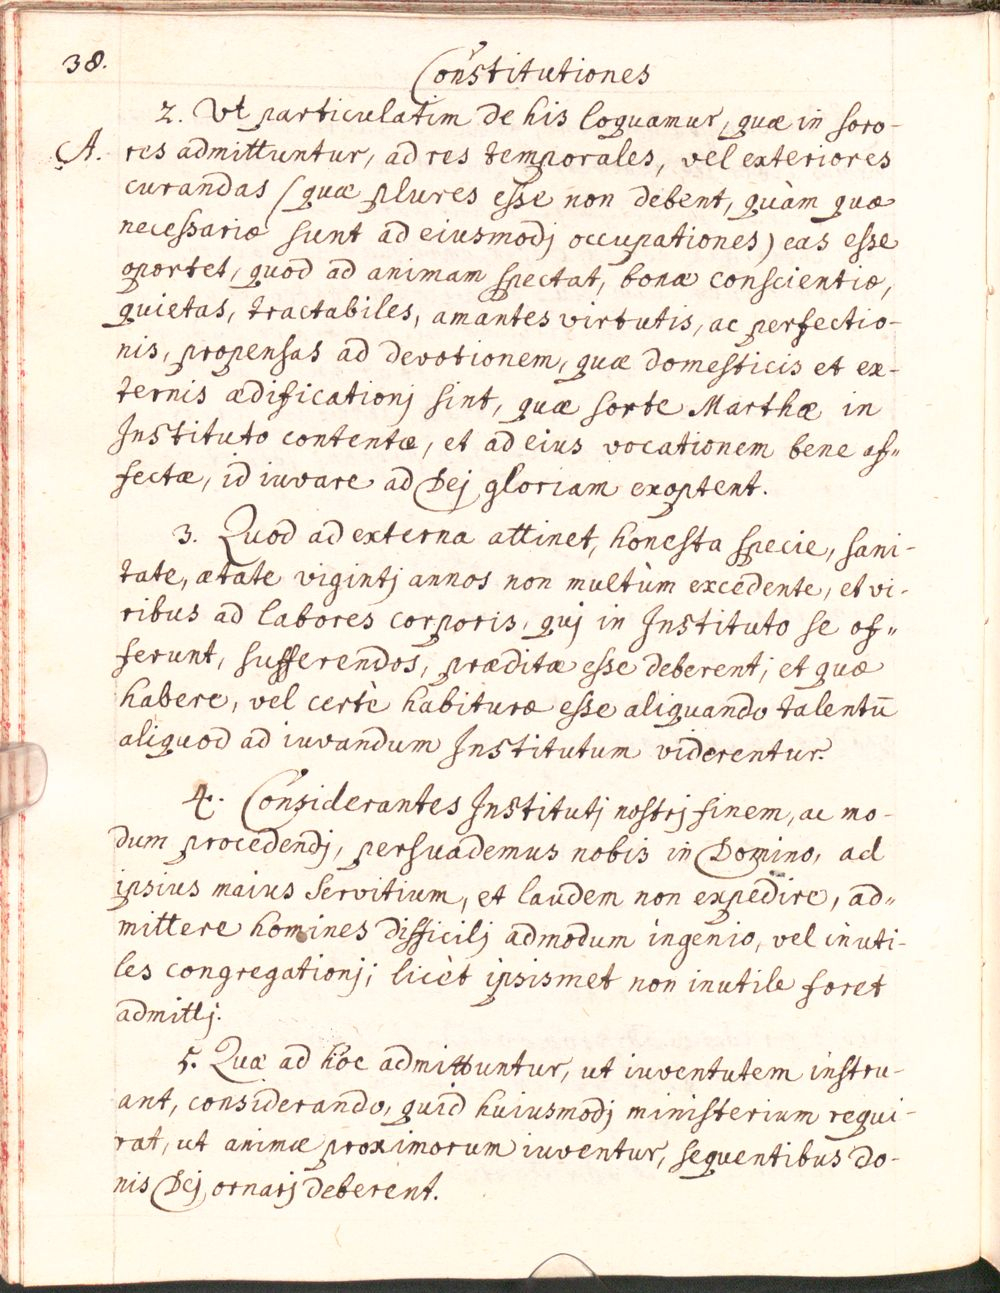 38.
Constitutiones
2. Vt particulatim de his loquamur, quæ in soro-
A. res admittuntur, ad res temporales, vel exteriores
curandas (quæ plures esse non debent, quàm quæ
necessariæ sunt ad eiusmodj occupationes) eas esse
oportet, quod ad animam spectat, bonæ conscientiæ,
quietas, tractabiles, amantes virtutis, ac perfectio-
nis, propensas ad devotionem, quæ domesticis et ex-
ternis ædificationj sint, quæ sorte Marthæ in
Instituto contentæ, et ad eius vocationem bene af=
fectæ, id iuvare ad Dej gloriam exoptent.
3. Quod ad externa attinet, honesta specie, sani-
tate, ætate vigintj annos non multùm excedente, et vi-
ribus ad labores corporis, quj in Instituto se of=
ferunt, sufferendos, præditæ esse deberent; et quæ
habere, vel certè habituræ esse aliquando talentū
aliquod ad iuvandum Institutum viderentur.
4. Considerantes Institutj nostrj finem, ac mo-
dum procedendj, persuademus nobis in Domino, ad
ipsius maius servitium, et laudem non expedire, ad=
mittere homines difficilj admodum ingenio, vel inuti-
les congregationj; licèt ipsismet non inutile foret
admittj.
5. Quæ ad hoc admittuntur, ut iuventutem instru-
ant, considerando, quid huiusmodj ministerium requi-
rat, ut animæ proximorum iuventur, sequentibus do-
nis Dej ornarj deberent.